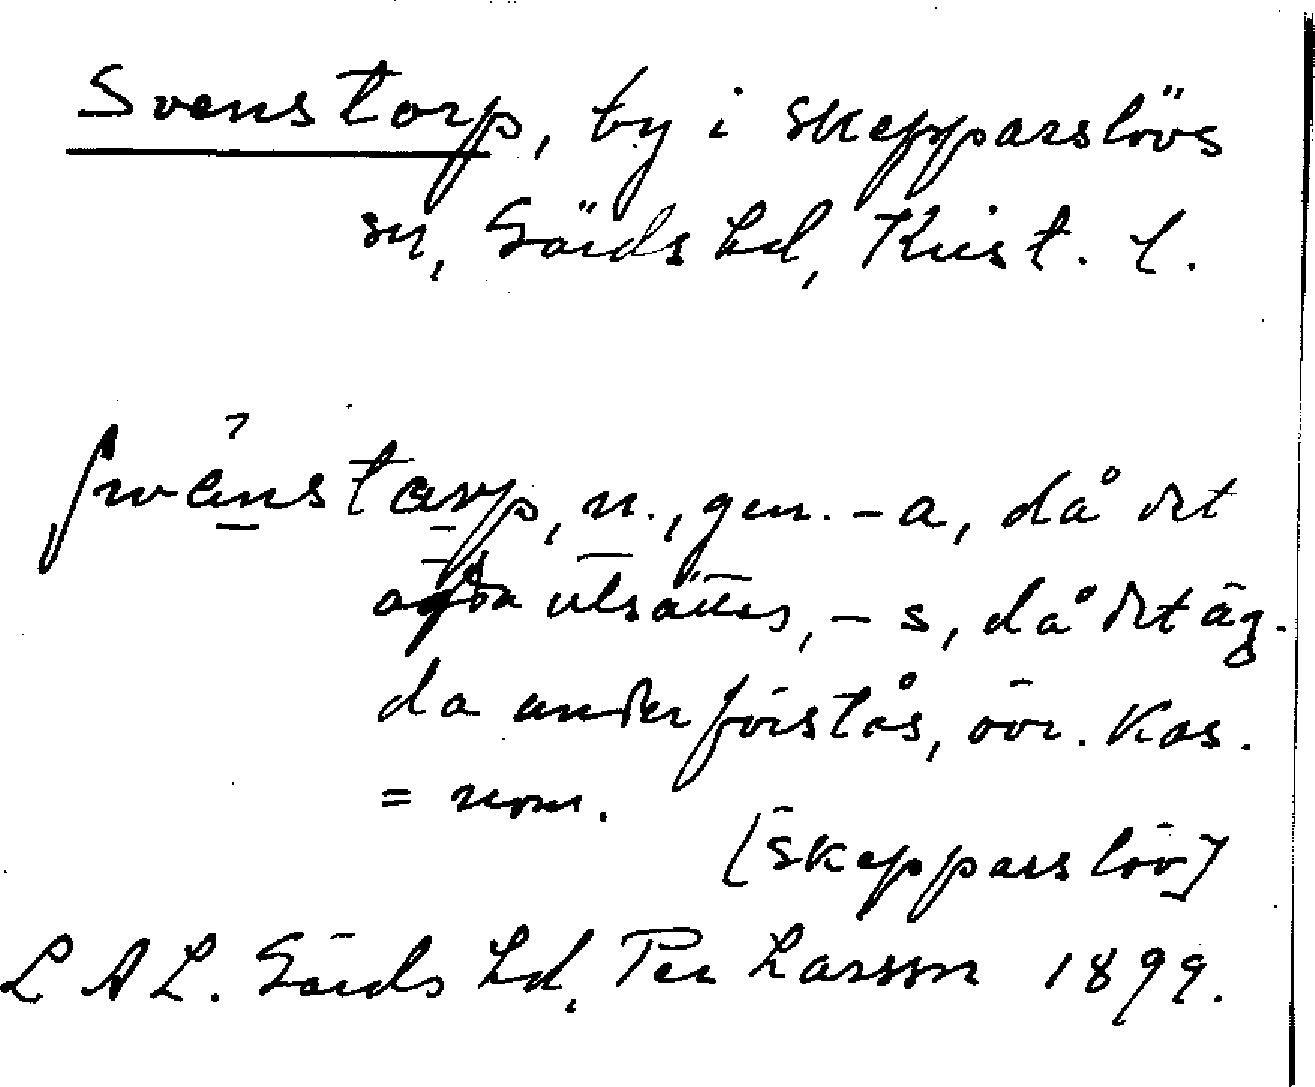 Svenstorp, by i Skepparslövs
sn, Gärds hd, Krist. l.
swänstarp, n., gen. -a, då det
ägda utsättes, -s, då det äg-
da underförstås, övr. kas.
= nom.
[Skepparslöv]
LAL. Gärds hd, Per Larsson 1899.